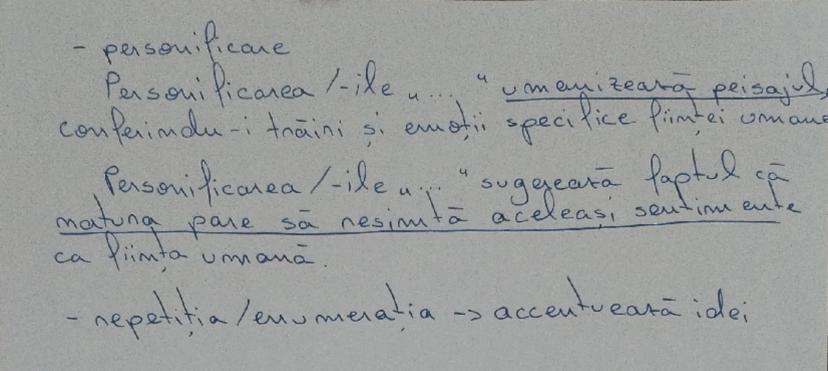 - personificare
Personificarea/-ile „...." umanizează peisajul,
conferindu-i trăiri și emoții specifice ființei umane
Personificarea/-ile „...." sugerează faptul că
natura pare să resimtă aceleași sentimente
ca ființa umană.
- repetiția/enumerația -> accentuează idei